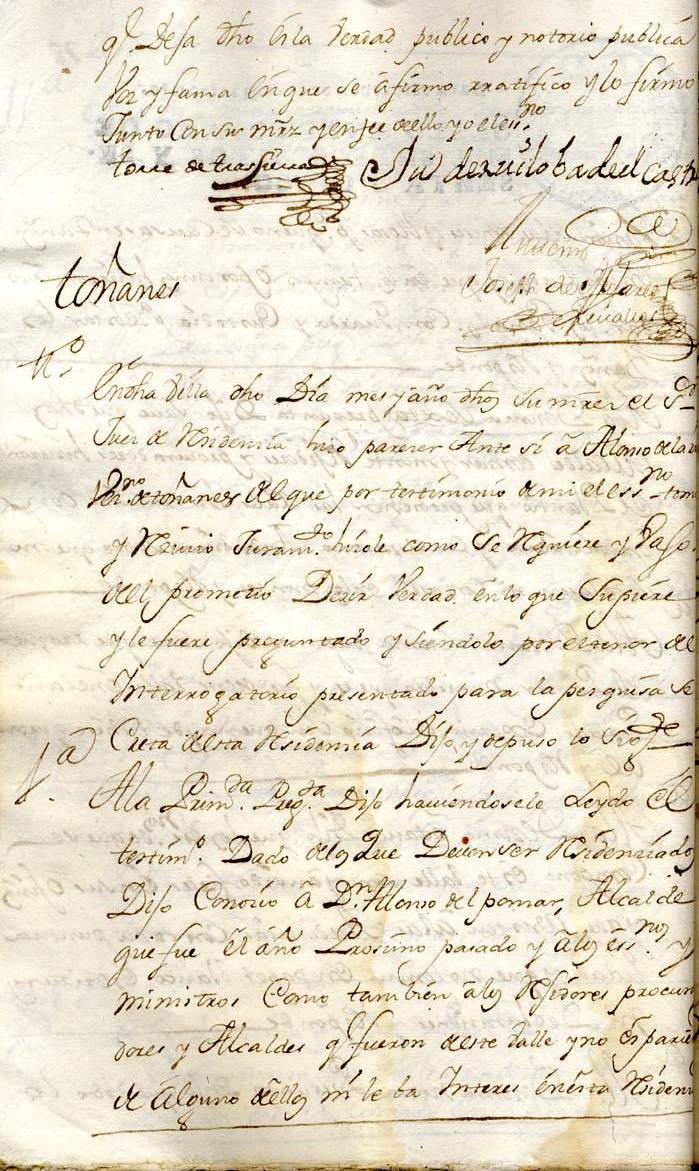 q.e Desa dho es la verdad publico y notorio publica
voz y fama en que se afirmo rratifico y lo firmo
Junto Con su mrz y en fee de ello yo el ess.no
torre de trassierra de Villoba del Castr
Antemi
Joseph de
toñanes
tt.o
En dha Villa dho Dia mes y año dhos su mrz el s.or
Juez de Residenzia hizo parezer Ante si â Alonso de la
Vez.no de toñanes del que por testimonio de mi el ess.no tomo
y Rezivio Juram.to hizole como se Requiere y vajo
del prometio Dezir Verdad en lo que supiere
y le fuere preguntado y siendolo por el tenor del
Interrogatorio presentado para la pesquisa se
Creta de esta Residenzia Dijo y depuso lo sig.te
1.a
A la Prim.ra Preg.ta Dijo haviendosele Leydo El
testim.o Dado de los que Deven ser Residenziados
Dijo Conozio â D.n Alonso del pomar, Alcalde
que fue el año Proximo pasado y a los ess.nos y
ministros Como tambien a los Rejidores procura
dores y Alcaldes q.e fueron de este Valle y no es parie
de alguno de ellos ni le ba Interes en esta Residen